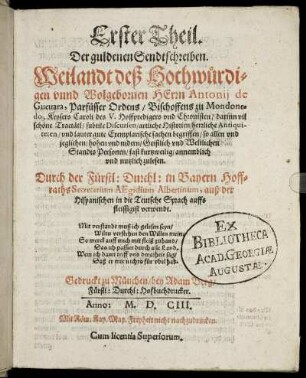 Erster Theil.
Der guldenen Sendtschreiben.
Weilandt deß Hochwürdi-
gen vnnd Wolgebornen HErrn Antonij de
Gueuara, Parfüsser Ordens, Bischoffens zu Mondone-
do, Keysers Caroli des V. Hoffpredigers vnd Chronisten, darinn vil
schöne Tractätl, subtile Discursen, artliche Historien, herrliche Antiqui-
teten, vnd lauter gute Exemplarische sachen begriffen, so allen vnd
jeglichen hohen vnd nidern, Geistlichen vnd Weltlichen
Stands Personen, fast kurtzweilig, annemblich
vnd nutzlich zulesen.
Durch der Fürstl: Durchl: in Bayern Hoff-
raths Secretarium AEgidium Albertinum, auß der
Hispanischen in die Teutsche Sprach auffs
fleissigist verwendt.
Mit verstandt muß ich gelesen sein,
EX
BIBLIOTHECA
ACAD. GEORGIAE
AUGUSTAE.
Gedruckt zu München, bey Adam Berg,
Fürstl: Durchl: Hofbuchdrucker.
Anno: M. D. CIII.
Mit Röm. Kay. May. Freyheit nicht nachzudrucken.
Cum licentia Superiorum.